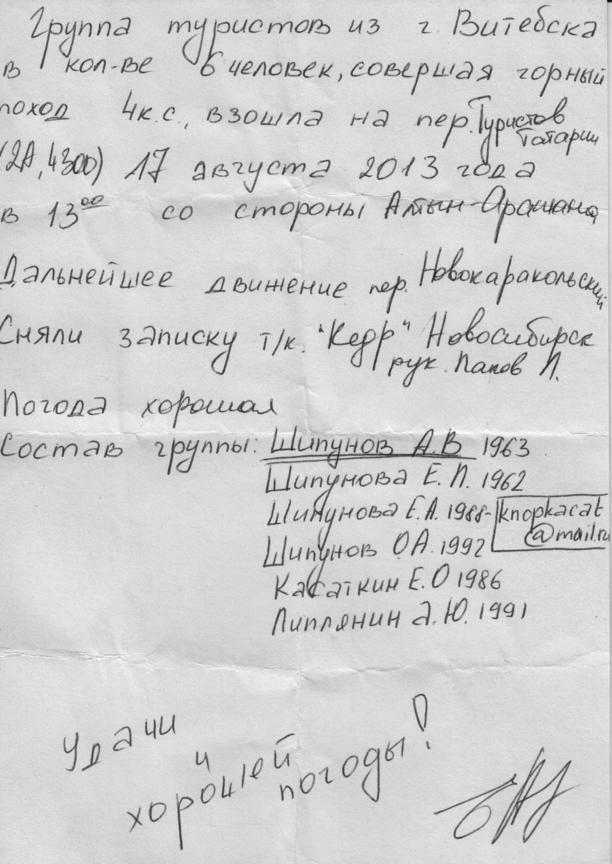 Группа туристов из г. Витебска
в кол-ве 6 человек, совершая горный
поход 4к.с., взошла на пер. Туристов
Татарии
(2А, 4300) 17 августа 2013 года
в 13⁰⁰ со стороны Алтын-Арашана
Дальнейшее движение пер. Новокаракольский
Сняли записку т/к. "Кедр" Новосибирск
рук. Папов Л.
Погода хорошая
Состав группы: Шипунов А.В 1963
Шипунова Е.Л. 1962
Шипунова Е.А. 1988- knopkacat
@mail.ru
Шипунов О.А. 1992
Касаткин Е.О 1986
Липлянин А.Ю. 1991
Удачи
и
хорошей погоды!